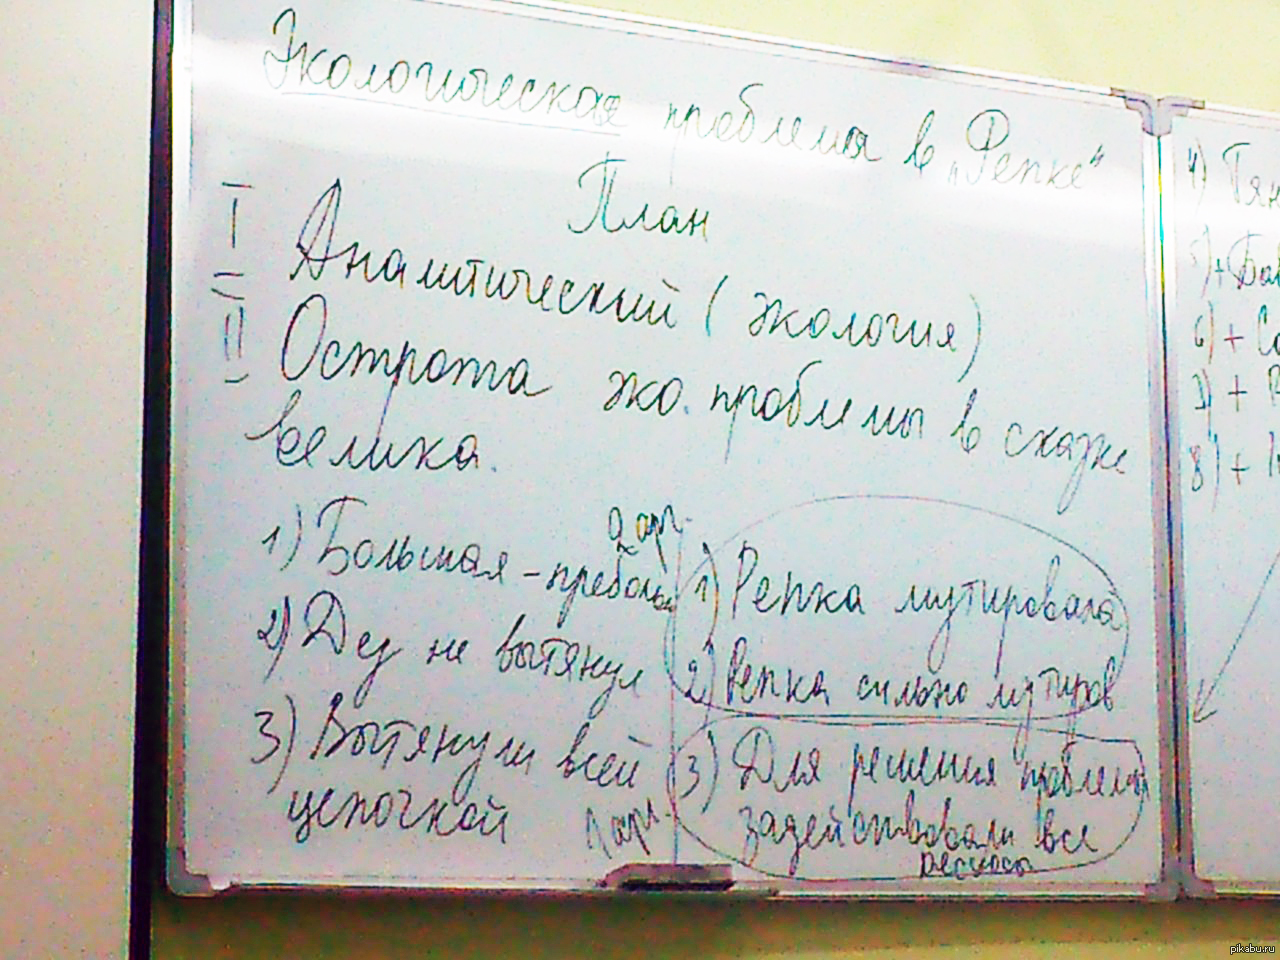 Экологическая проблема в "Репке"
План
I Аналитический (экология)
II Острота эко. проблемы в сказке
велика.
2 арг.
1) Большая - пребольшая
2) Дед не вытянул
3) Вытянули всей
цепочкой
1) Репка мутировала
2) Репка сильно мутиров
1 арг.
3) Для решения проблемы
задействовали все
ресурсы
4) Тян
5) + Баб
6) +
7) +
8) +
pikabu.ru